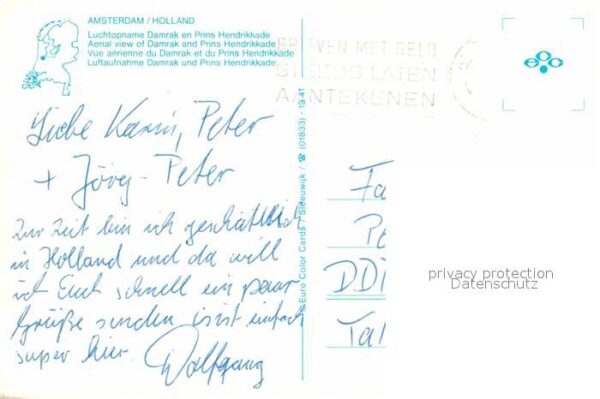 AMSTERDAM / HOLLAND
Luchtopname Damrak en Prins Hendrikkade
Aerial view of Damrak and Prins Hendrikkade
Vue aérienne du Damrak et du Prins Hendrikkade
Luftaufnahme Damrak und Prins Hendrikkade
BRIEVEN MET GELD
STEEDS LATEN
AANTEKENEN
Liebe Karin, Peter
+ Jörg-Peter
Zur Zeit bin ich geschäftlich
in Holland und da will
ich Euch schnell ein paar
Grüße senden isist einfach
super hier. Wolfgang
Euro Color Cards / Sleeuwijk / ☎ (01833) - 1941
Fa
Pe
DDi
Tal
privacy protection
Datenschutz